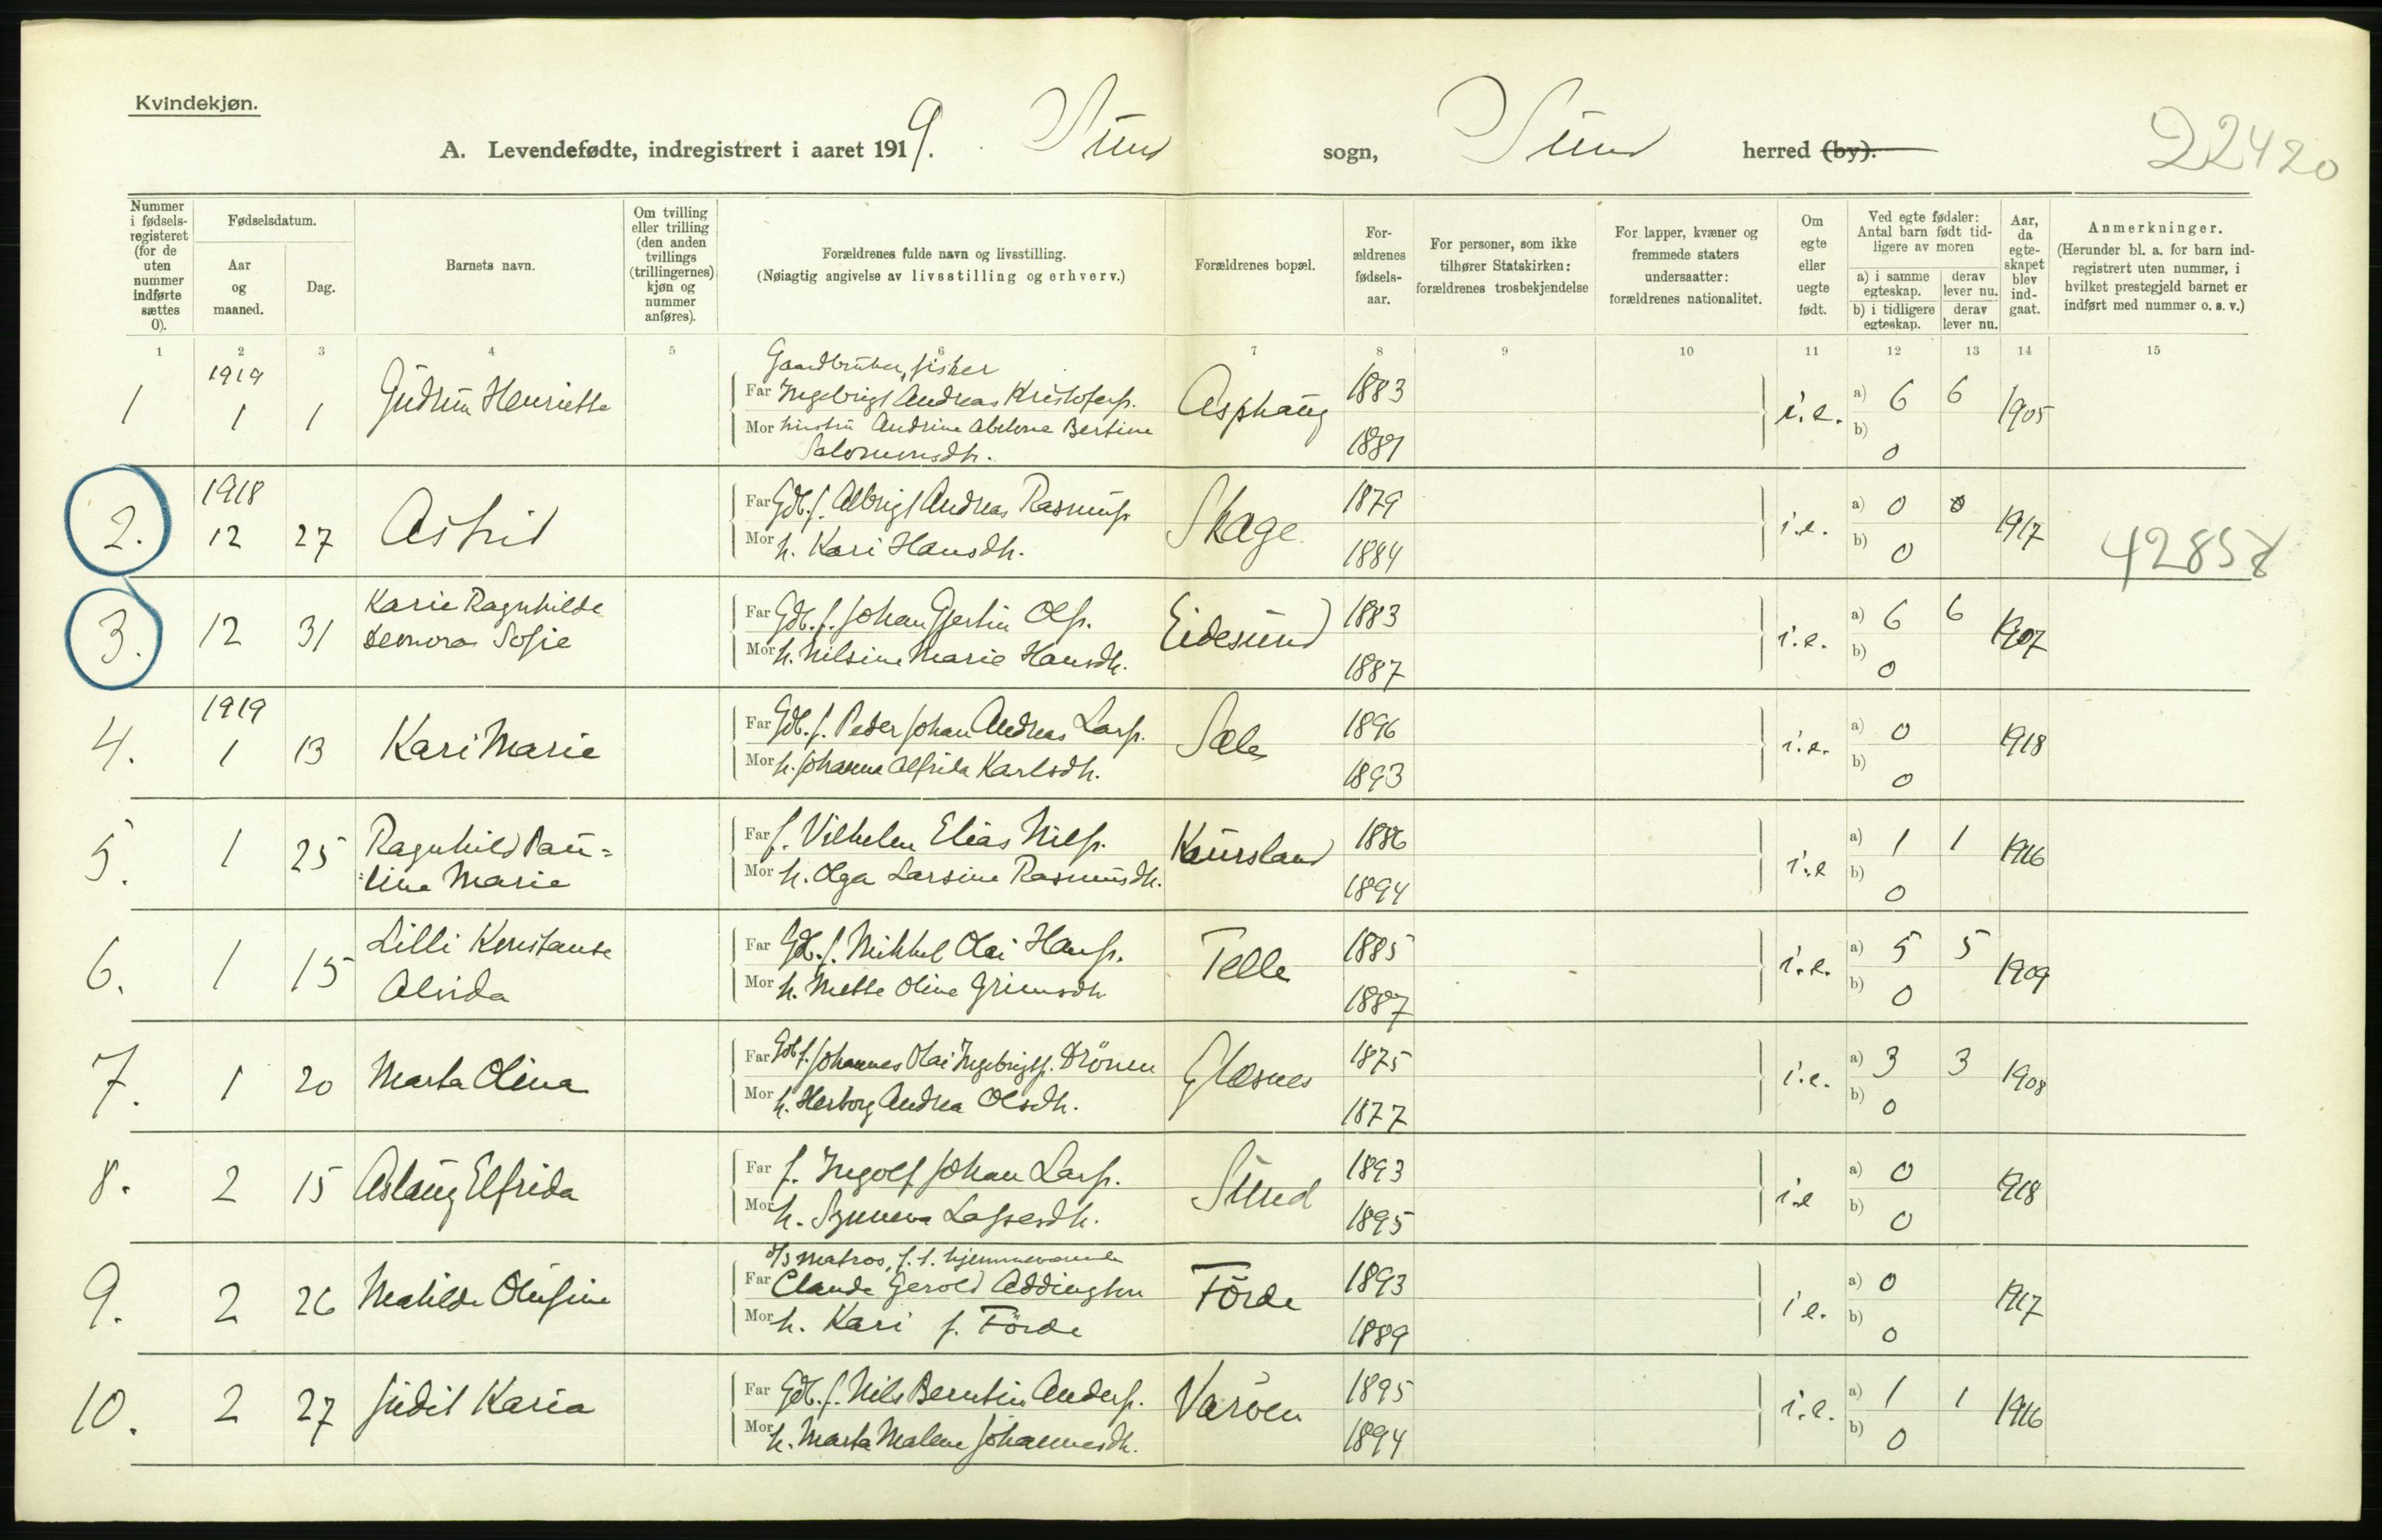 Kvindekjøn.
A. Levendefødte, indregistrert i aaret 1919. Sund sogn, Sund herred (by).
22420
Nummer i fødselsregisteret (for de uten nummer indførte sættes 0).
Fødselsdatum.
Aar og maaned.
Dag.
Barnets navn.
Om tvilling eller trilling (den anden tvillings (trillingernes) kjøn og nummer anføres).
Forældrenes fulde navn og livsstilling.
(Nøiagtig angivelse av livsstilling og erhverv.)
Forældrenes bopæl.
Forældrenes fødselsaar.
For personer, som ikke tilhører Statskirken: forældrenes trosbekjendelse
For lapper, kvæner og fremmede staters undersaatter: forældrenes nationalitet.
Om egte eller uegte født.
Ved egte fødsler: Antal barn født tidligere av moren
a) i samme egteskap. derav lever nu.
b) i tidligere egteskap. derav lever nu.
Aar, da egteskapet blev indgaat.
Anmerkninger.
(Herunder bl. a. for barn indregistrert uten nummer, i hvilket prestegjeld barnet er indført med nummer o. s. v.)
1 2 3 4 5 6 7 8 9 10 11 12 13 14 15
1919 Gaardbruker, fisker
1 1 1 Gudrun Henriette Far Ingebrigt Andreas Kristofersen. Asphaug 1883 i.e. a) 6 6 1905
Mor hustru Andrine Abelone Bertine 1881 b) 0
Salomonsdh.
1918
2. 12 27 Astrid Far Gdb. f. Albrigt Andreas Rasmuss. Skage 1879 i.e. a) 0 0 1917
Mor h. Kari Hansdh. 1884 b) 0
42857
3. 12 31 Karie Ragnhilde Far Gdb. f. Johan Gjertin Ols. Eidesund 1883 i.e. a) 6 6 1907
Leonora Sofie Mor h. Nilsine Marie Hansdh. 1887 b) 0
1919
4. 1 13 Kari Marie Far Gdb. f. Peder Johan Andreas Lars. Sæle 1896 i.e. a) 0 1918
Mor h. Johanna Alfrida Karlsdh. 1893 b) 0
5. 1 25 Ragnhild Pau= Far f. Vilhelm Elias Nils. Kausland 1886 i.e a) 1 1 1916
=line Marie Mor h. Olga Larsine Rasmusdh. 1894 b) 0
6. 1 15 Lilli Konstanse Far Gdb. f. Mikkel Olai Hans. Telle 1885 i.e. a) 5 5 1909
Alvida Mor h. Mette Oline Grimsdh 1887 b) 0
7. 1 20 Marta Olina Far Gdb f. Johannes Olai Ingebrigts. Drönen Glesnes 1875 i.e. a) 3 3 1908
Mor h. Herborg Andrea Olsdh. 1877 b) 0
8. 2 15 Aslaug Elfrida Far f. Ingolf Johan Lars. Sund 1893 i.e a) 0 1918
Mor h. Synneva Lassesdh. 1895 b) 0
d/s matros, f. t. hjemmeværende
9. 2 26 Matilde Olufine Far Claude Gerold Addington Förde 1893 i e. a) 0 1917
Mor h. Kari f. Förde 1889 b) 0
10. 2 27 Judit Karia Far Gdb. f. Nils Berntin Anders. Varöen 1895 i.e. a) 1 1 1916
Mor h. Marta Malene Johannesdh. 1894 b) 0